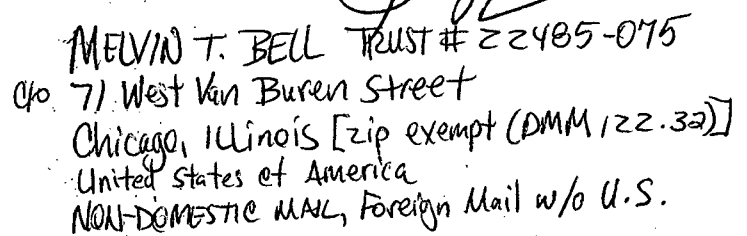 MELVIN T. BELL TRUST # 22485-075
c/o 71 West Van Buren Street
Chicago, Illinois [zip exempt (DMM 122.32)]
United States of America
NON-DOMESTIC MAIL, Foreign Mail w/o U.S.